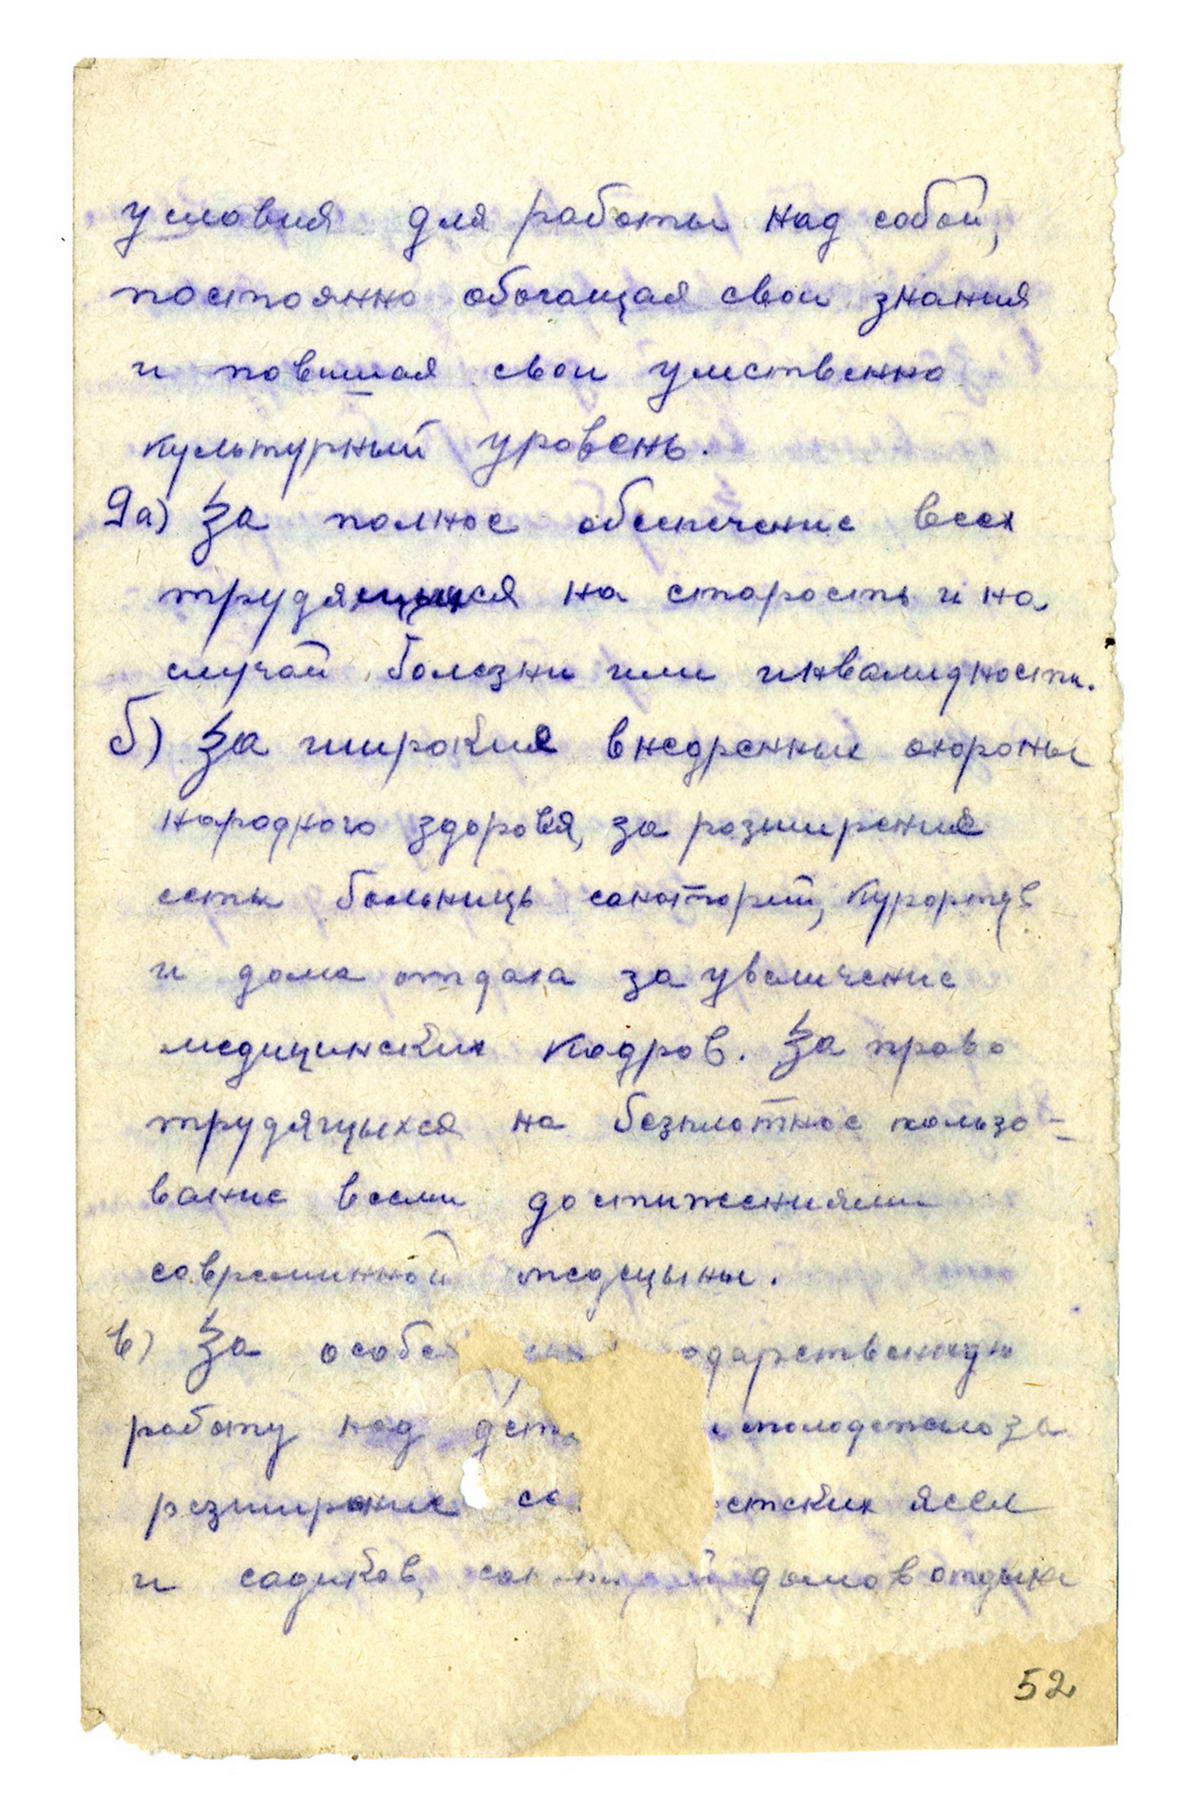 условия для работы над собой,
постоянно обогащая свои знания
и повишая свои умственно
культурный уровень.
9а) За полное обеспечение всех
трудящыхся на старость и на
случай болезни или инвалидности.
б) За широкие внедренние охороны
народного здоровя, за розширение
сеты больниць санаторий, курортов
и дома отдаха за увеличение
медицинских кадров. За право
трудящыхся на безплатное пользо-
вание всеми достижениями
совреминной медецыны.
в) За особ одарственную
работу над дет молодежею за
розширение се етских ясел
и садиков, домов отдыха
52